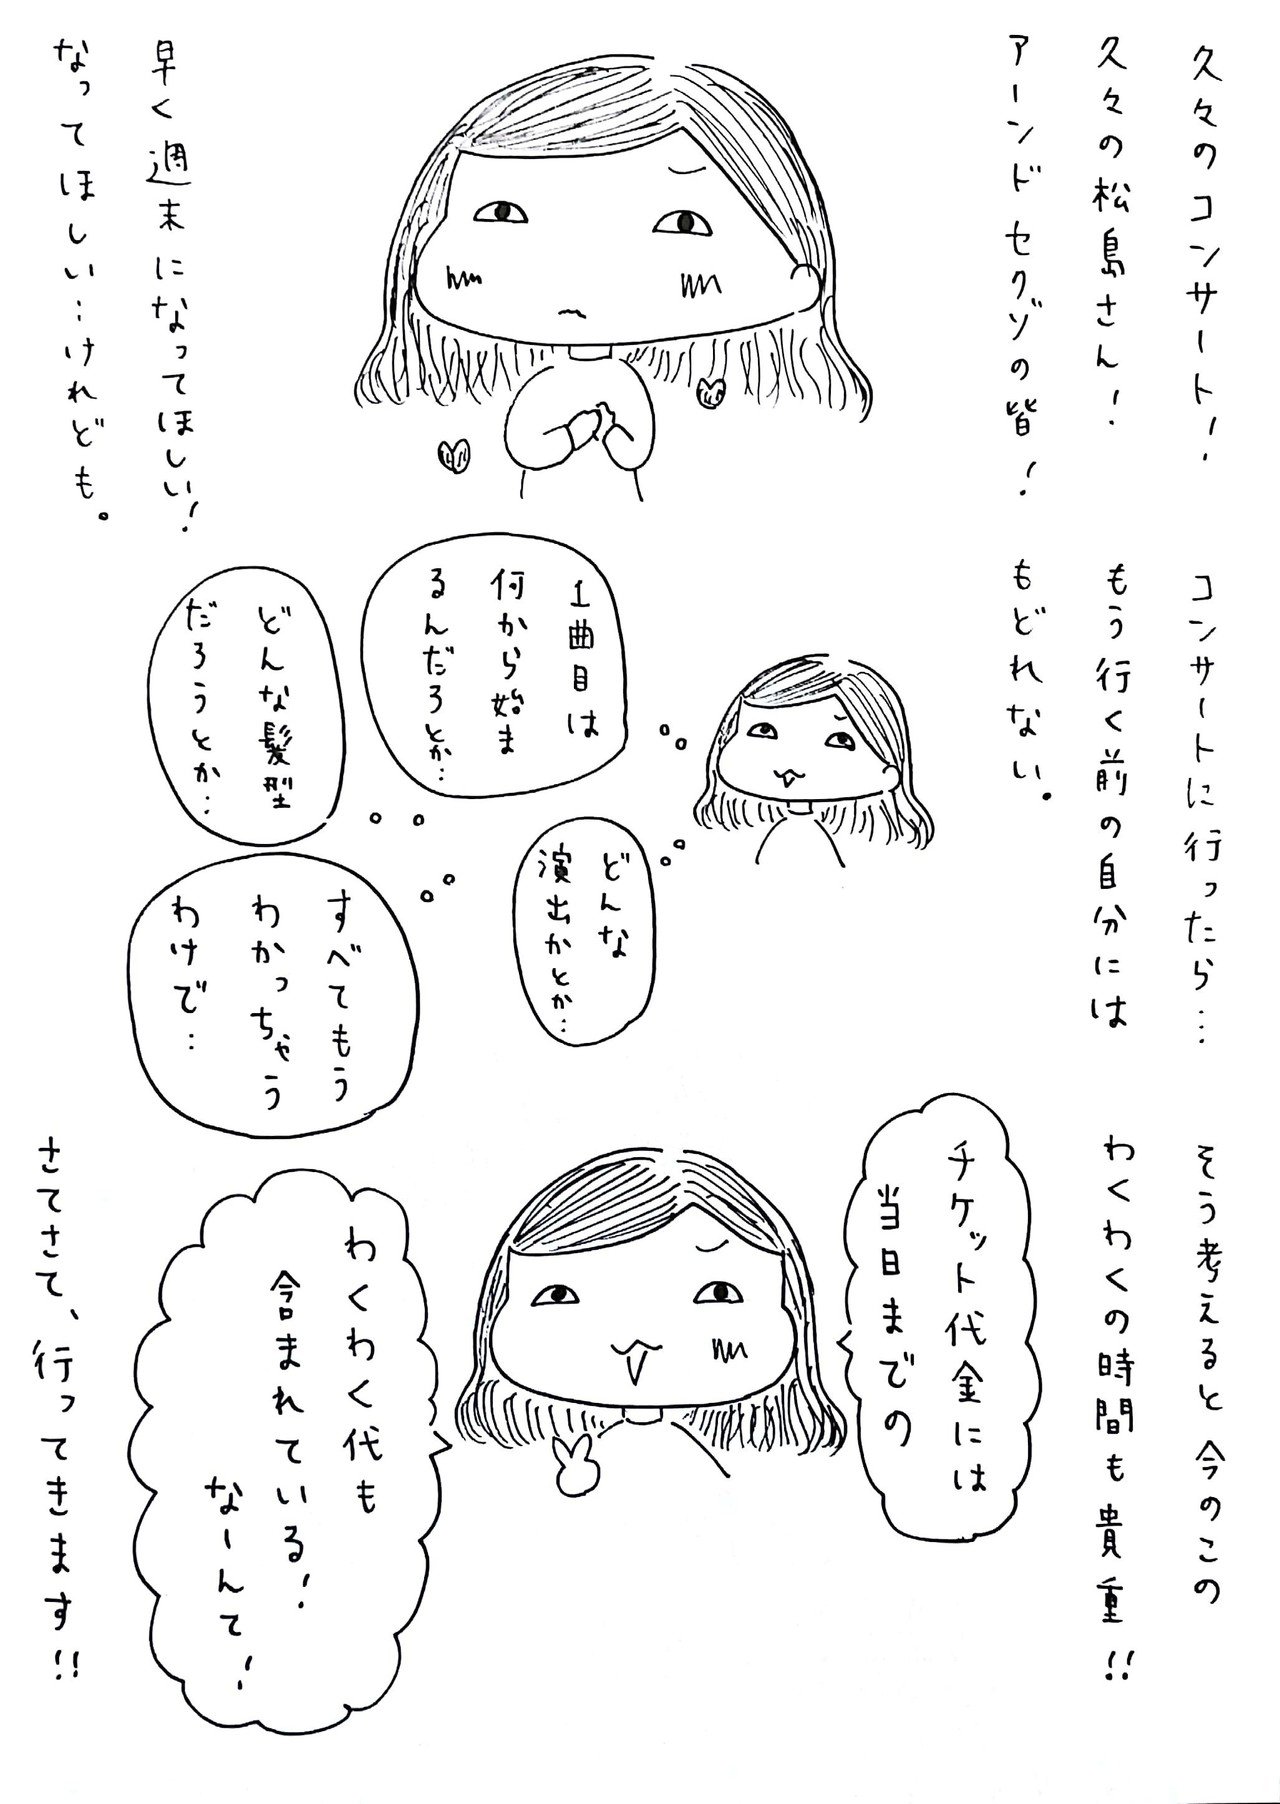 久々のコンサート！
久々の松島さん！
アーンド セクゾの皆！
早く週末になってほしい！
なってほしい…けれども。
コンサートに行ったら…
もう行く前の自分には
もどれない。
1曲目は
何から始ま
るんだろとか…
どんな髪型
だろうとか…
どんな
演出かとか…
すべてもう
わかっちゃう
わけで…
そう考えると 今のこの
わくわくの時間も貴重!!
チケット代金には
当日までの
わくわく代も
含まれている！
なーんて！
さてさて、行ってきます!!